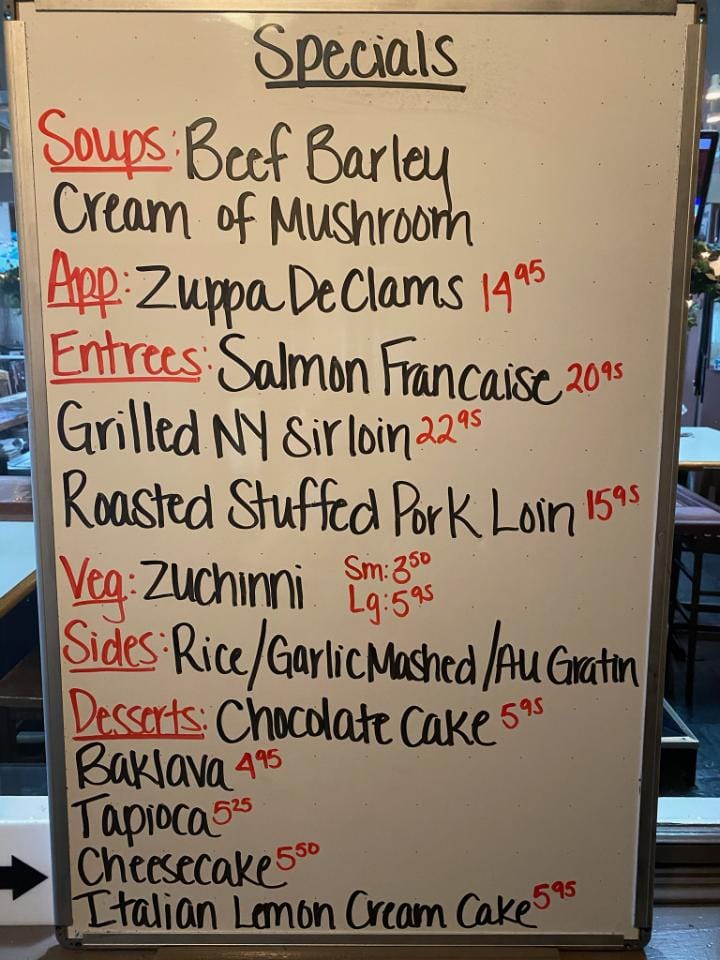 Specials
Soups: Beef Barley
Cream of Mushroom
App: Zuppa De Clams 14 95
Entrees: Salmon Francaise 20 95
Grilled NY Sirloin 22 95
Roasted Stuffed Pork Loin 15 95
Veg: Zuchinni Sm: 3 50
Lg: 5 95
Sides: Rice/Garlic Mashed/Au Gratin
Desserts: Chocolate Cake 5 95
Baklava 4 95
Tapioca 5 25
Cheesecake 5 50
Italian Lemon Cream Cake 5 95